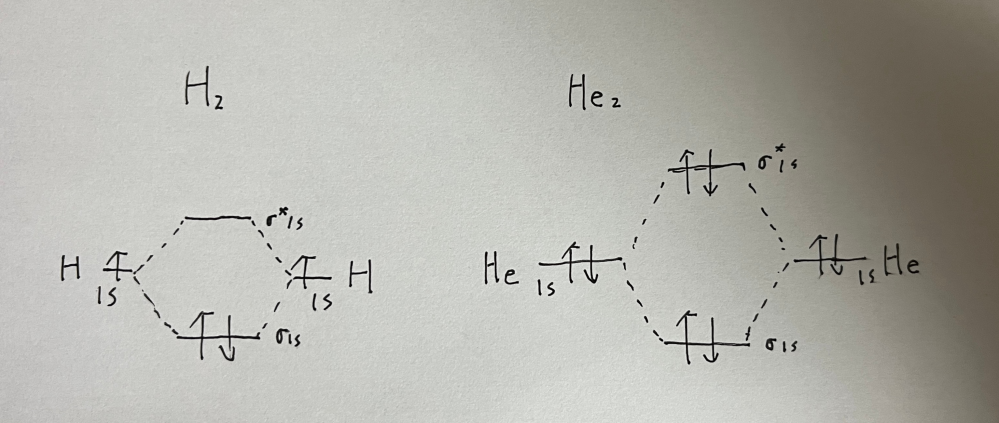 H₂
He₂
σ*1s
H 1s
1s H
σ1s
σ*1s
He 1s
1s He
σ1s